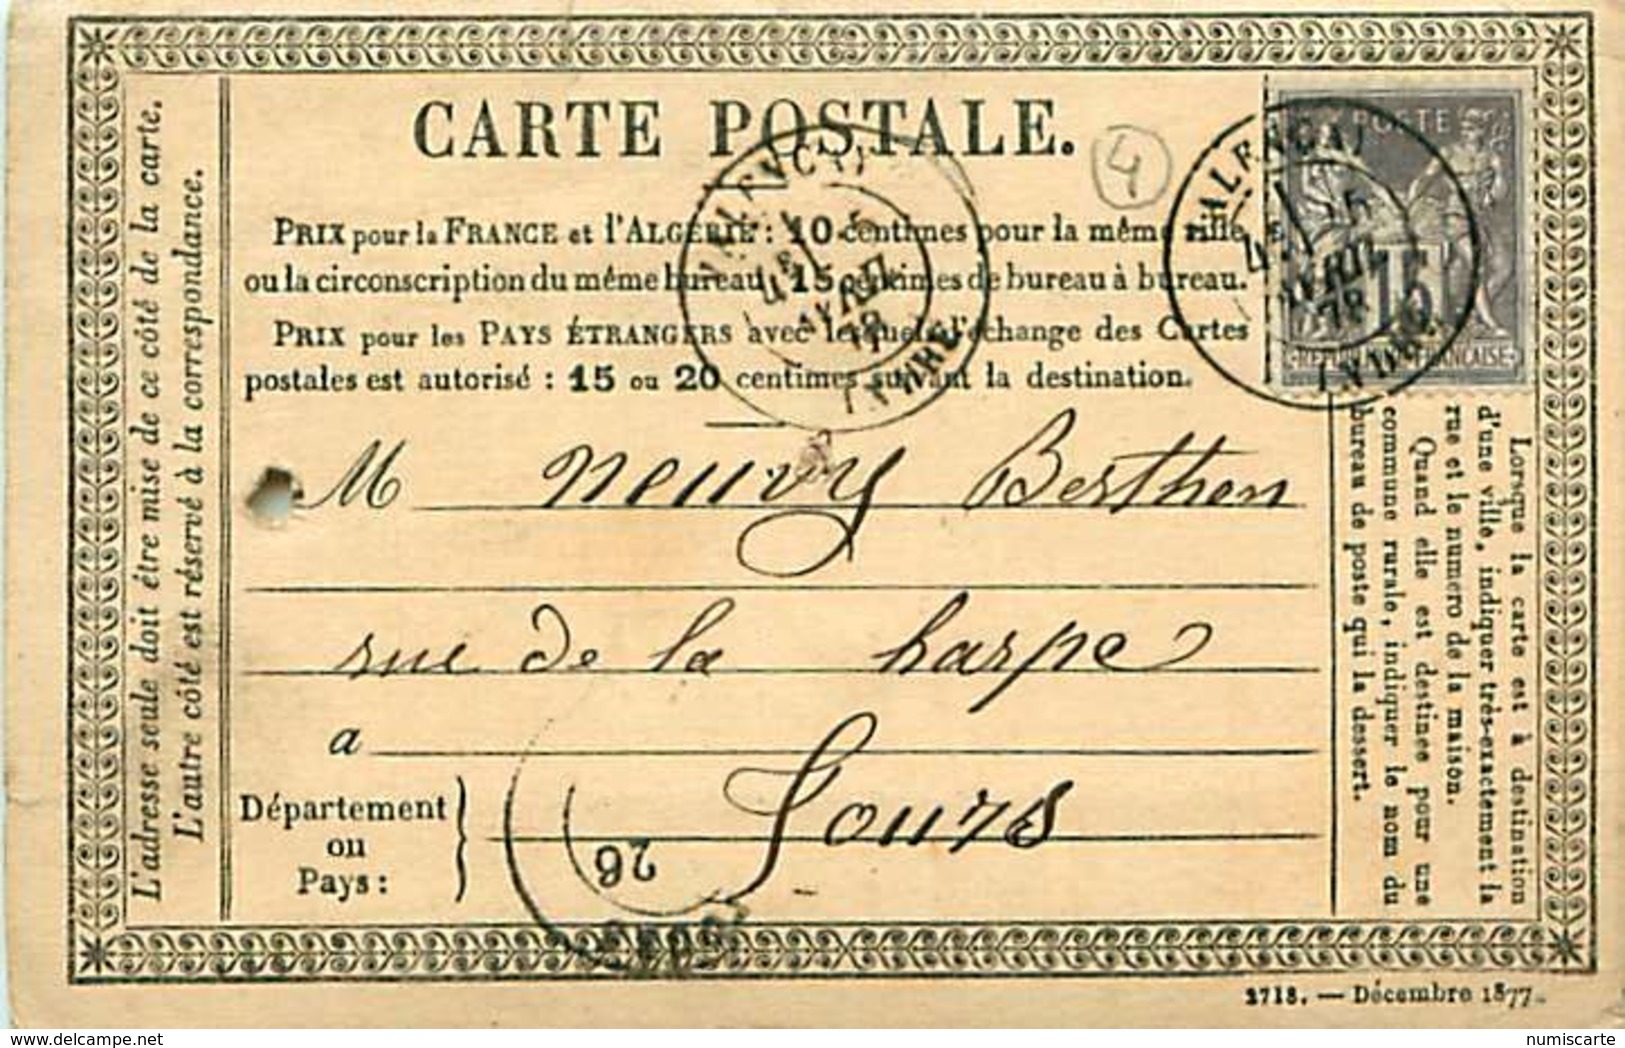 CARTE POSTALE.
4
PRIX pour la FRANCE et l'ALGÉRIE : 10 centimes pour la même ville
ou la circonscription du même bureau, 15 centimes de bureau à bureau.
PRIX pour les PAYS ÉTRANGERS avec lesquels l'échange des Cartes
postales est autorisé : 15 ou 20 centimes suivant la destination.
VALENÇAY
4E
15
AVRIL
78
INDRE
POSTE
15
REPUBLIQUE FRANÇAISE
VALENÇAY
4E
15
AVRIL
78
INDRE
M Neuvy Berthon
rue de la harpe
a
Tours
Département
ou
Pays :
26
L'adresse seule doit être mise de ce côté de la carte.
L'autre côté est réservé à la correspondance.
Lorsque la carte est à destination
d'une ville, indiquer très-exactement la
rue et le numero de la maison.
Quand elle est destinee pour une
commune rurale, indiquer le nom du
bureau de poste qui la dessert.
2718. — Décembre 1877.
numiscarte